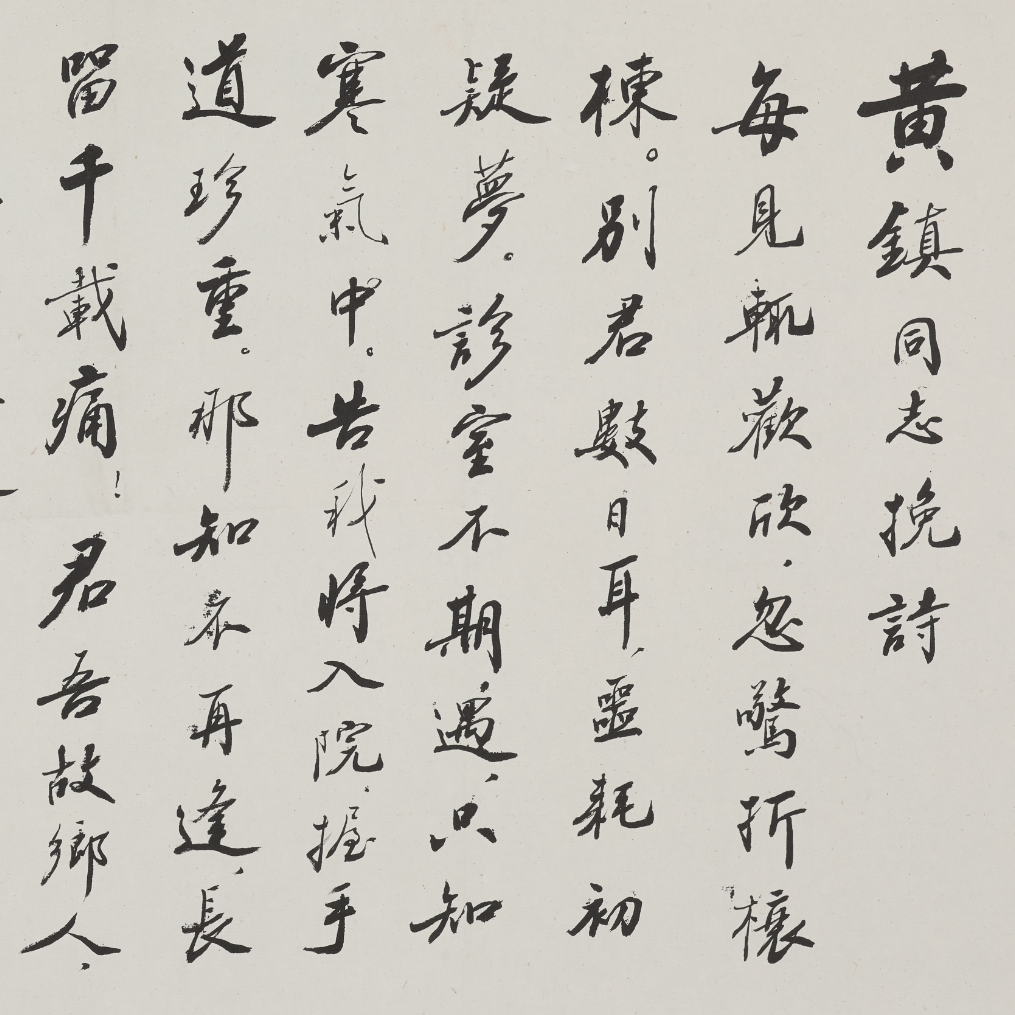 黄鎮同志挽詩
每見輒歡欣，忽驚折榱
棟。別君數日耳，噩耗初
疑夢。診室不期遇，只知
寒氣中。告我將入院，握手
道珍重。那知不再逢，長
留千載痛！君吾故鄉人，